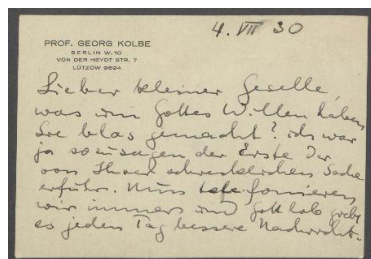 4. VII 30
PROF. GEORG KOLBE
BERLIN W. 10
VON DER HEYDT STR. 7
LÜTZOW 9624
Lieber kleiner Geselle
was um Gottes Willen haben
Sie blos gemacht? ich war
ja sozusagen der Erste der
von Ihrer schrecklichen Sache
erfuhr. Nun telefonieren
wir immer und gottlob giebt
es jeden Tag bessere Nachricht.